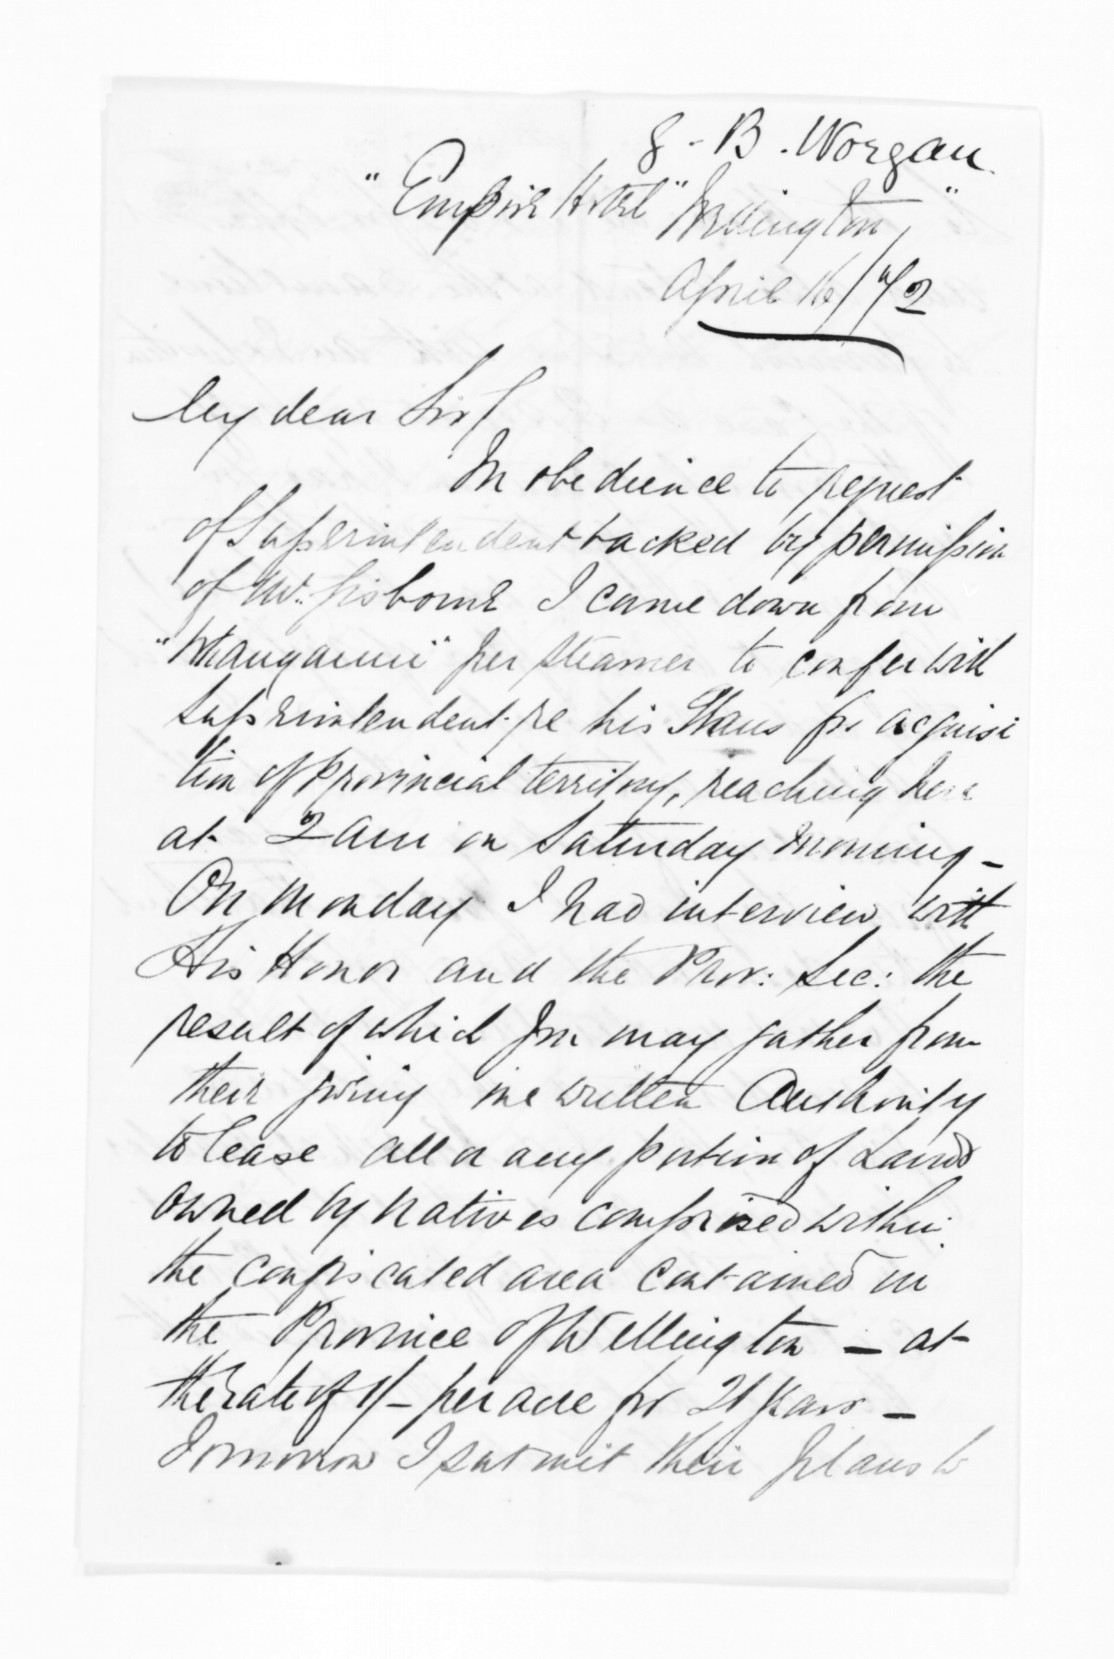 S. B. Worgan.
"Empire Hotel" Wellington,"
April 16/72
My dear Sir/
In obedience to request
of Superintendent backed by permission
of Mr. Gisborne I came down from
"Wanganui" per steamer to confer with
Superintendent re his Plans for acquisi
tion of Provincial territory, reaching here
at 2 am on Saturday morning -
On Monday I had interview with
His Honor and the Prov: Sec: the
result of which you may gather from
their giving me written Authority
to lease all or any portion of Land
owned by natives comprised within
the confiscated area contained in
the Province of Wellington - at
the rate of 1/- per acre for 21 years -
Tomorrow I submit their plans to